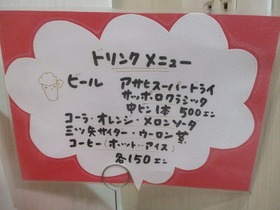 ドリンクメニュー
ビール アサヒスーパードライ
サッポロクラシック
中ビン1本 500エン
コーラ・オレンジ・メロンソーダ
三ツ矢サイダー・ウーロン茶
コーヒー(ホット・アイス)
各150エン